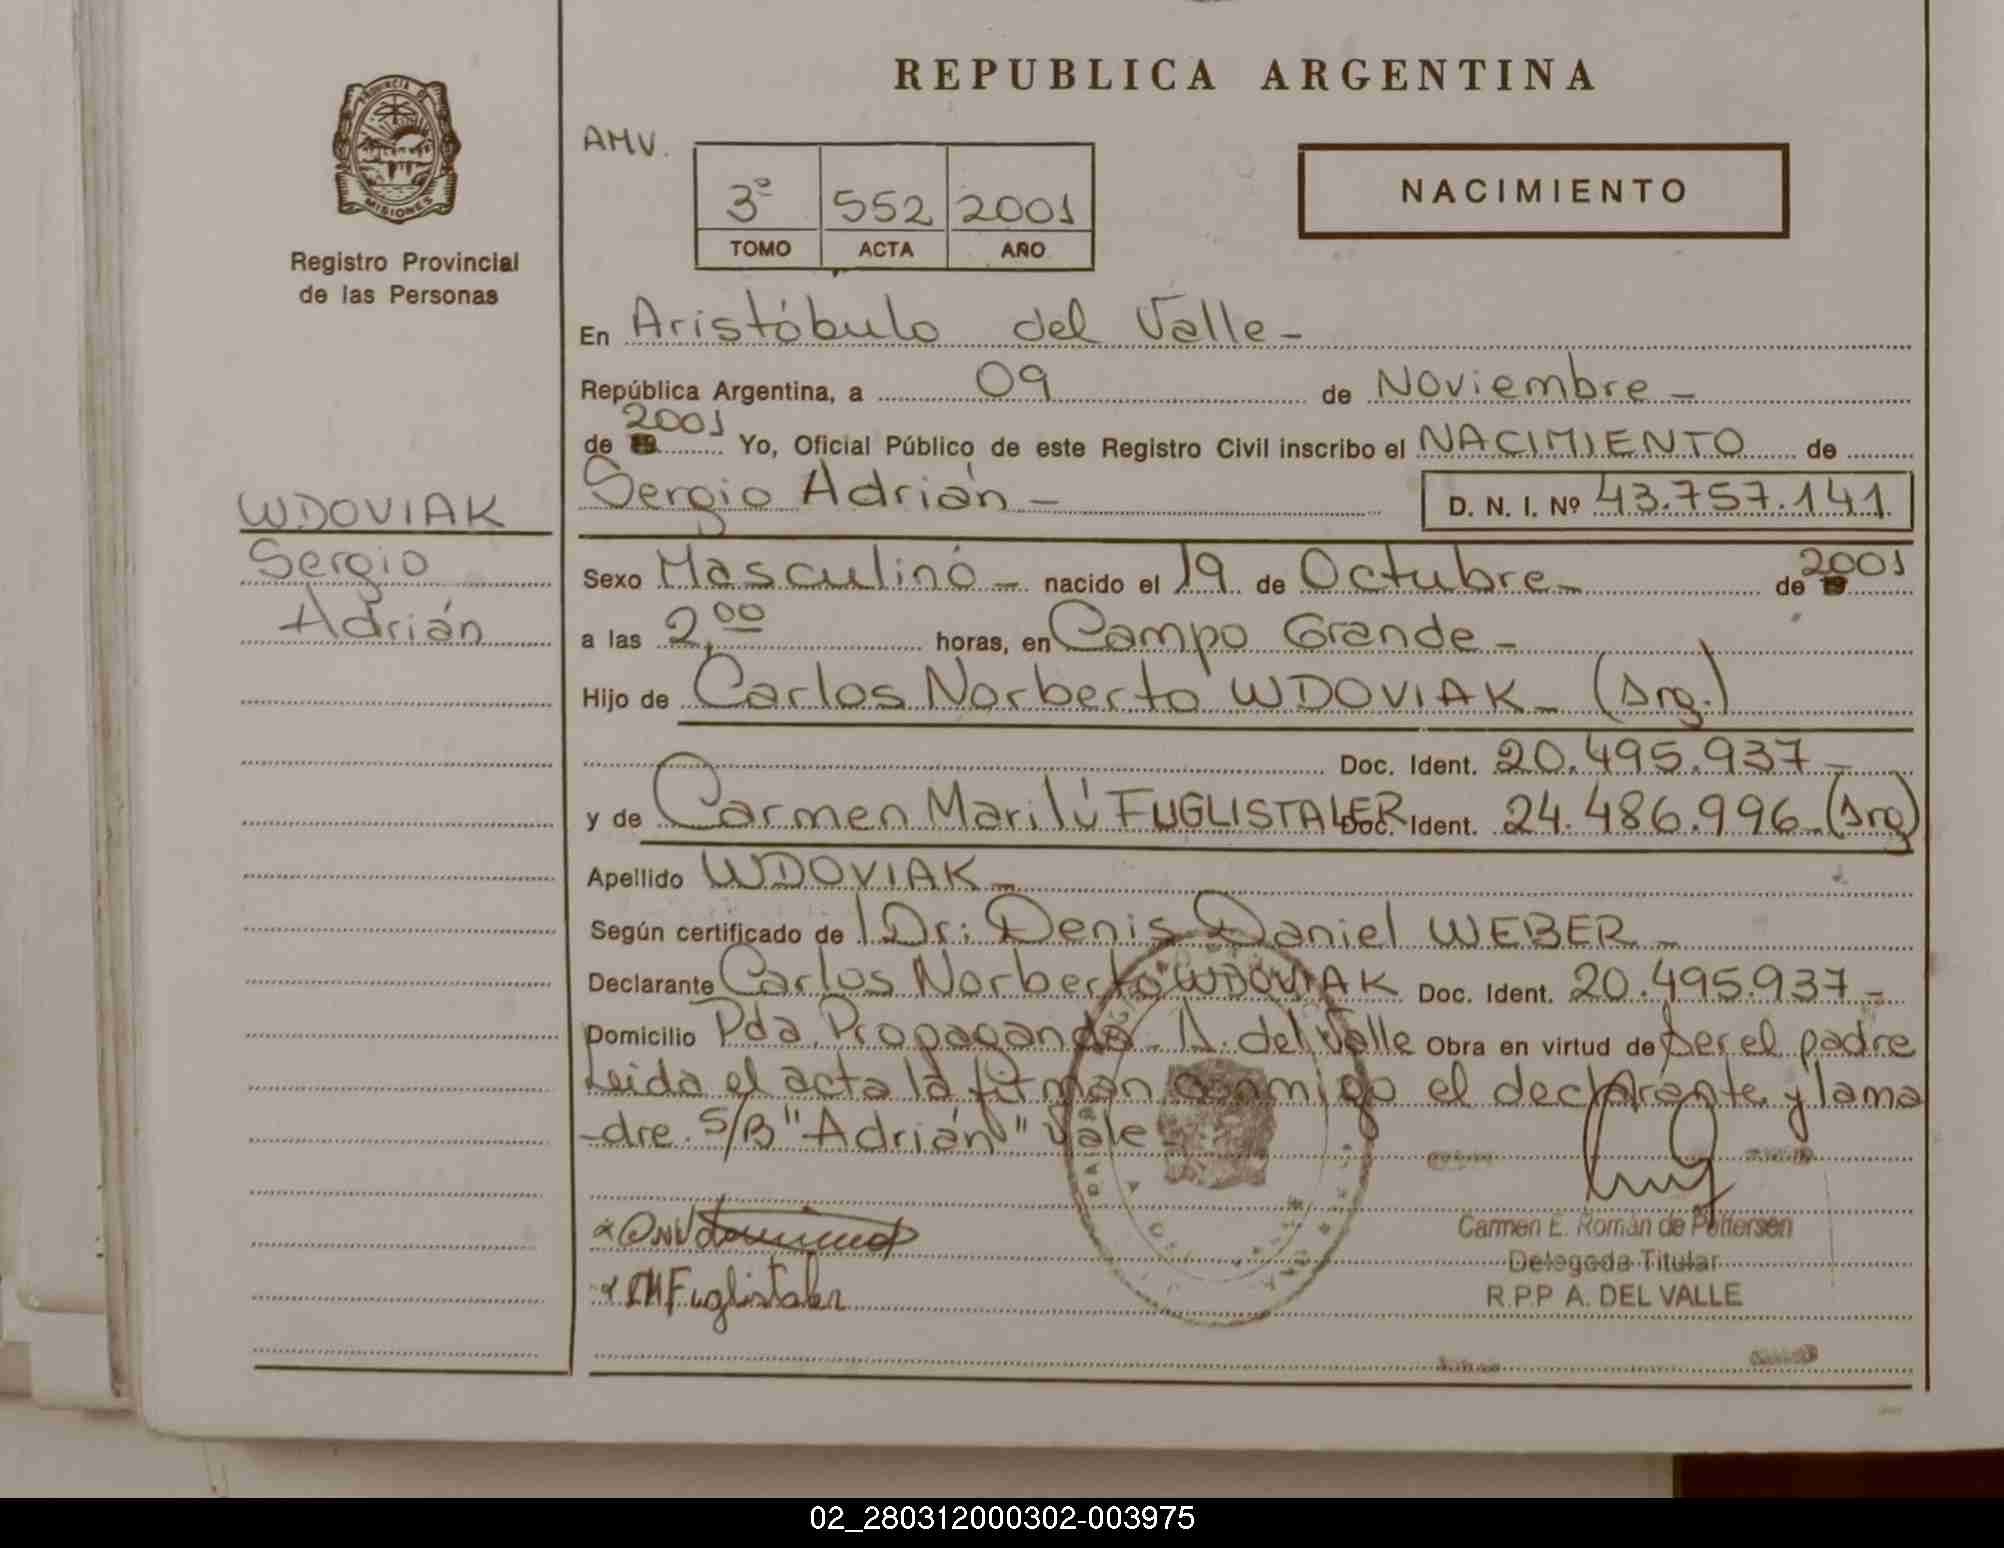 REPUBLICA ARGENTINA
AMV.
3º 552 2001
TOMO ACTA AÑO
NACIMIENTO
PROVINCIA DE
MISIONES
Registro Provincial
de las Personas
WDOVIAK
Sergio
Adrián
En Aristóbulo del Valle-
República Argentina, a 09 de Noviembre-
de 2001 Yo, Oficial Público de este Registro Civil inscribo el NACIMIENTO de
Sergio Adrián- D. N. I. Nº 43.757.141
Sexo Masculino- nacido el 19 de Octubre- de 2001
a las 2,00 horas, en Campo Grande-
Hijo de Carlos Norberto WDOVIAK- (Arg.)
Doc. Ident. 20.495.937-
y de Carmen Marilú FUGLISTALER Doc. Ident. 24.486.996-(Arg)
Apellido WDOVIAK-
Según certificado de Dr: Denis Daniel WEBER-
Declarante Carlos Norberto WDOVIAK Doc. Ident. 20.495.937-
Domicilio Pda. Propaganda- A. del Valle Obra en virtud de ser el padre
Leida el acta la firman conmigo el declarante y la ma
-dre. S/B "Adrián" Vale-
Fuglistaler
Carmen E. Román de Pettersen
Delegada Titular
R.P.P A. DEL VALLE
02_280312000302-003975